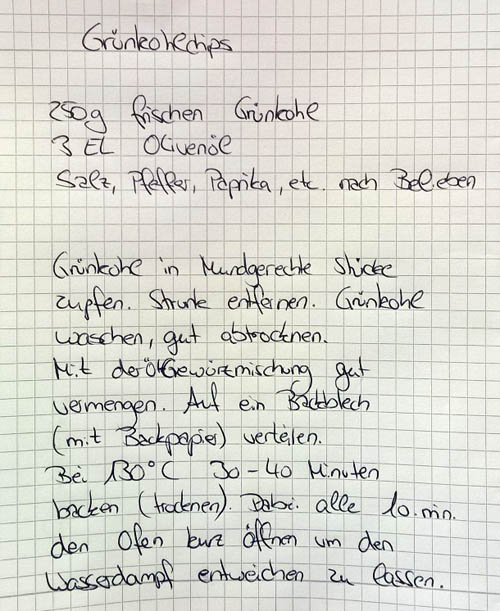 Grünkohlchips
250g frischen Grünkohl
3 EL Olivenöl
Salz, Pfeffer, Paprika, etc. nach Belieben
Grünkohl in Mundgerechte Stücke
zupfen. Strunk entfernen. Grünkohl
waschen, gut abtrocknen.
Mit der Öl-Gewürzmischung gut
vermengen. Auf ein Backblech
(mit Backpapier) verteilen.
Bei 130°C 30-40 Minuten
backen (trocknen). Dabei alle 10 min.
den Ofen kurz öffnen um den
Wasserdampf entweichen zu lassen.